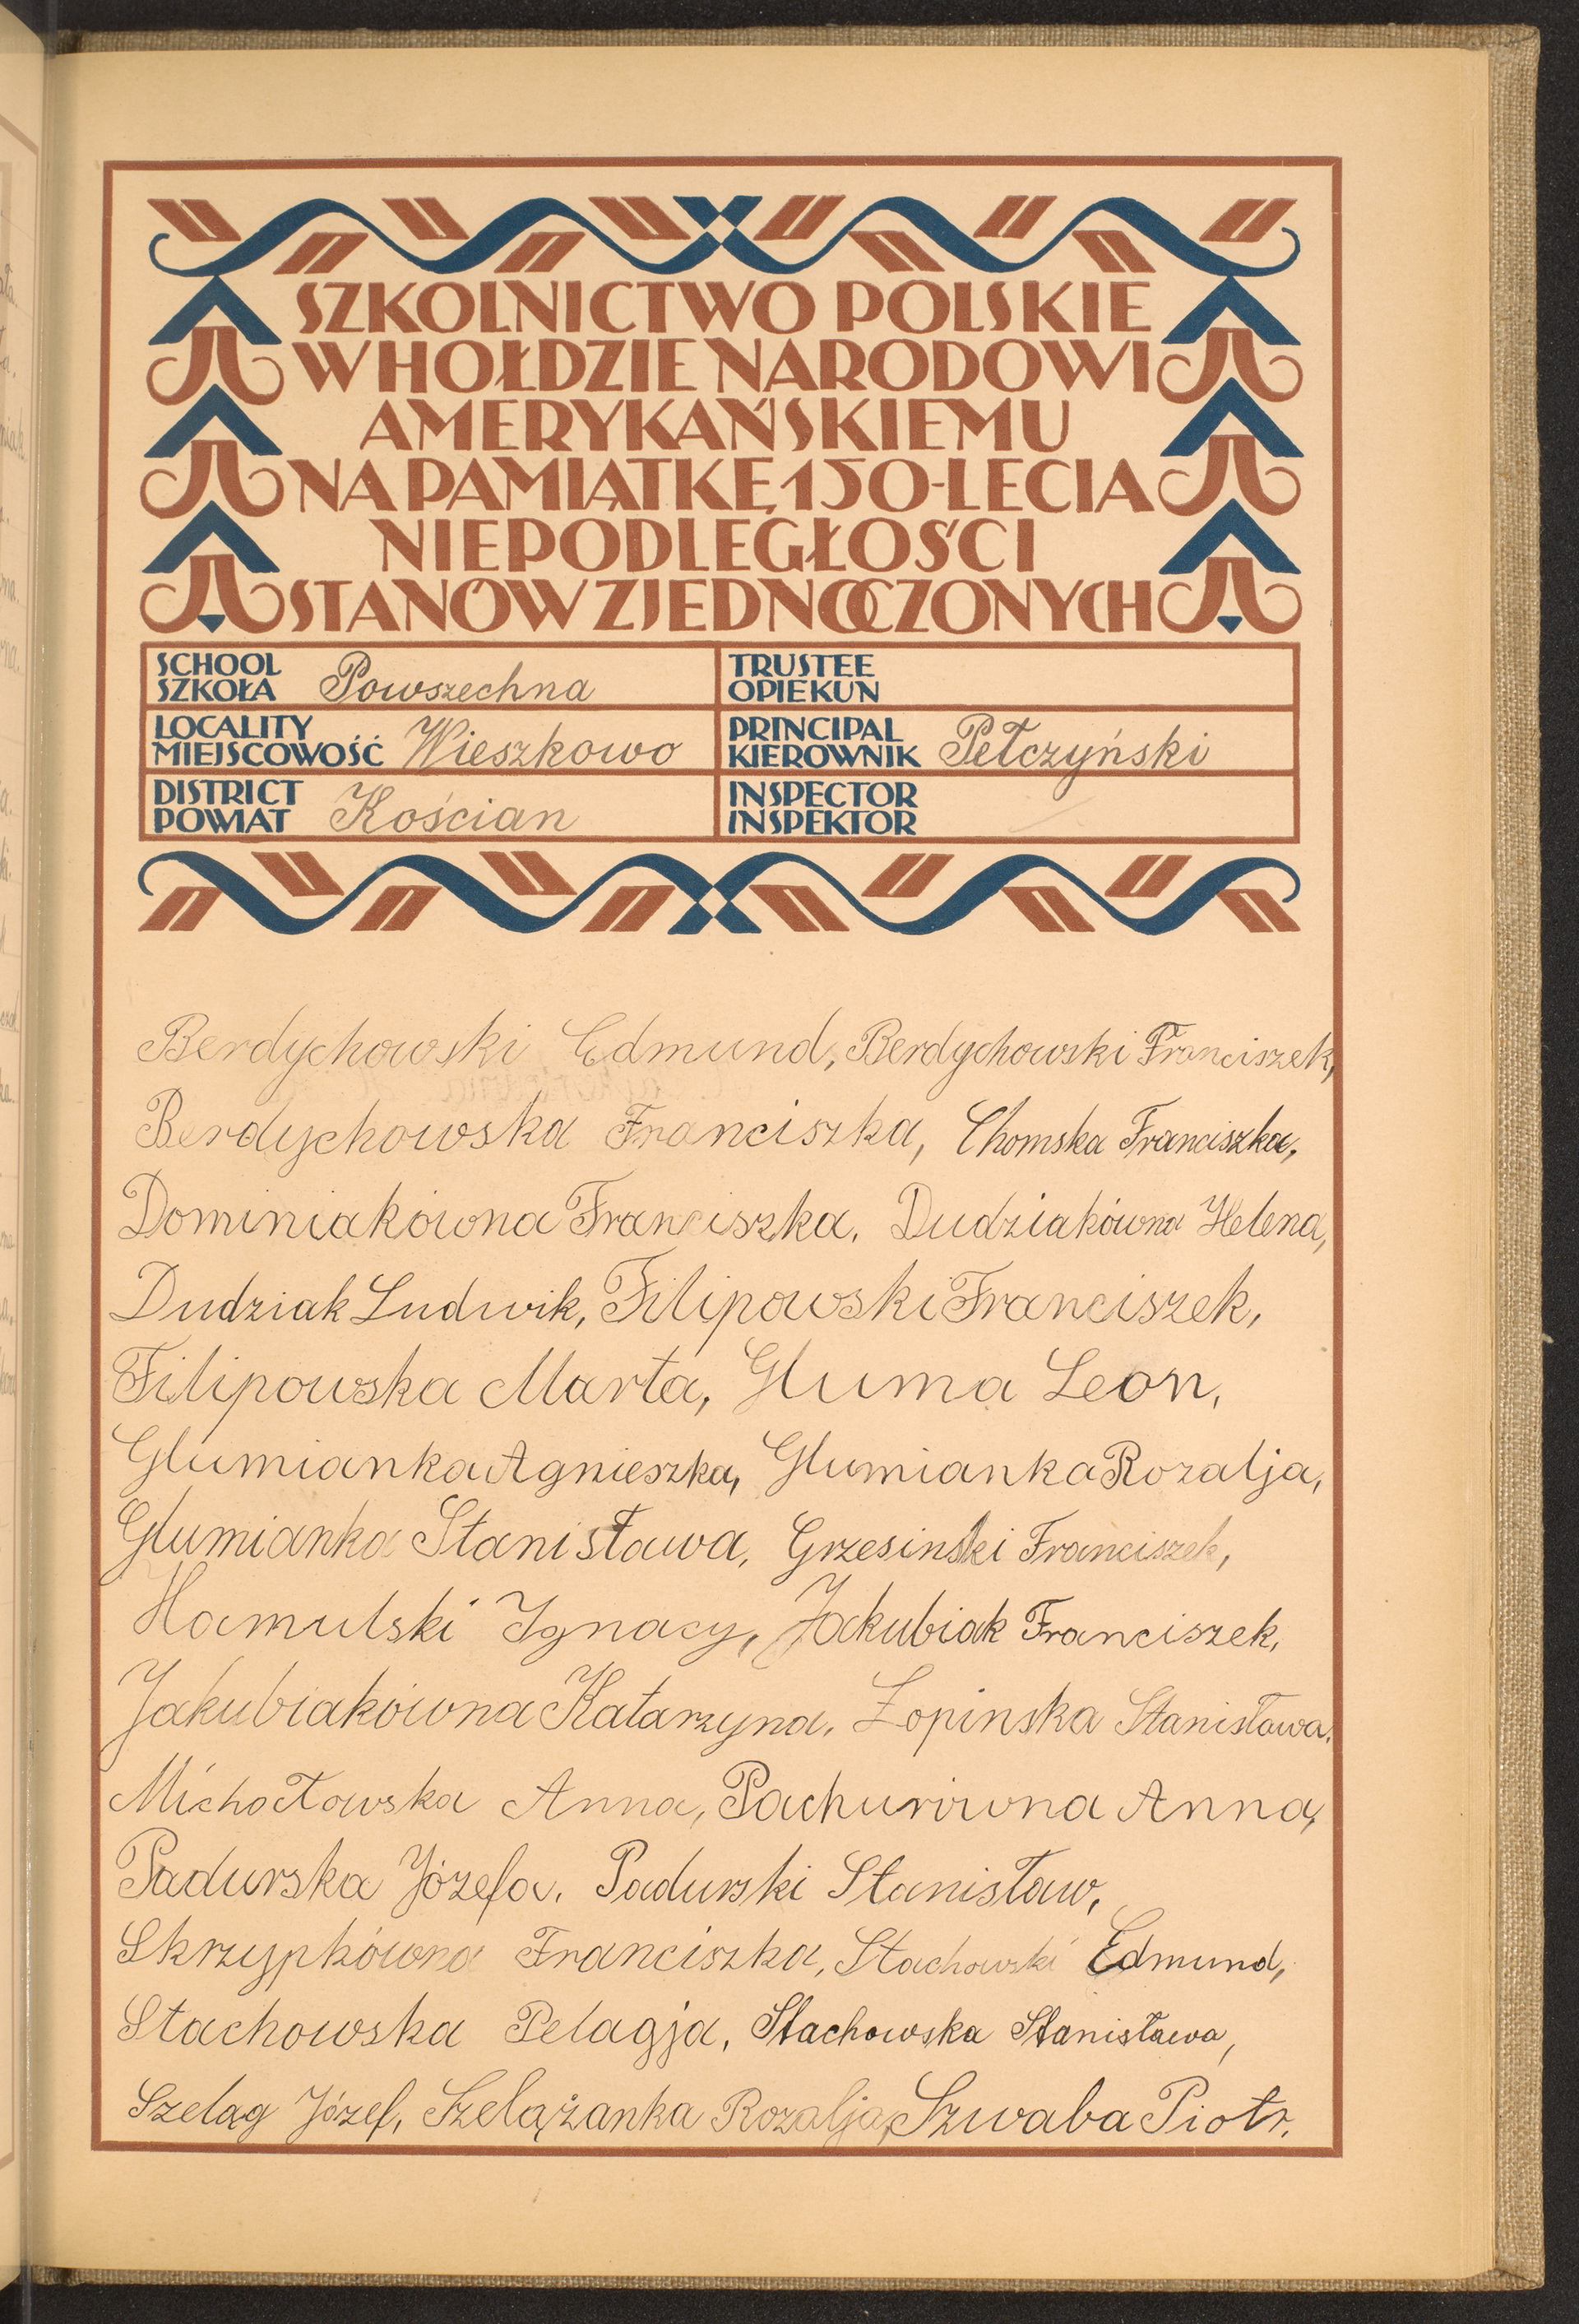 SZKOLNICTWO POLSKIE
W HOŁDZIE NARODOWI
AMERYKAŃSKIEMU
NA PAMIĄTKĘ 150-LECIA
NIEPODLEGŁOŚCI
STANÓW ZJEDNOCZONYCH
SCHOOL
SZKOŁA Powszechna
TRUSTEE
OPIEKUN
LOCALITY
MIEJSCOWOŚĆ Wieszkowo
PRINCIPAL
KIEROWNIK Pełczyński
DISTRICT
POWIAT Kościan
INSPECTOR
INSPEKTOR
Berdychowski Edmund, Berdychowski Franciszek,
Berdychowska Franciszka, Chomska Franciszka,
Dominiakówna Franciszka, Dudziakówna Helena,
Dudziak Ludwik, Filipowski Franciszek,
Filipowska Marta, Gluma Leon,
Glumianka Agnieszka, Glumianka Rozalja,
Glumianka Stanisława, Grzesinski Franciszek,
Hamulski Ignacy, Jakubiak Franciszek,
Jakubiakówna Katarzyna, Łopinska Stanisława.
Michałowska Anna, Pachurówna Anna,
Padurska Józefa, Padurski Stanisław,
Skrzypkówna Franciszka, Stachowski Edmund,
Stachowska Pelagja, Stachowska Stanisława,
Szeląg Józef, Szelążanka Rozalja, Szwaba Piotr.